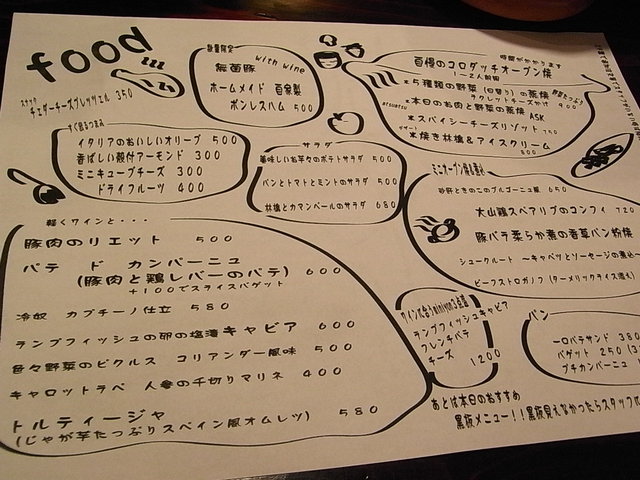 food
スナック
チェダーチーズプレッツェル 350
数量限定
with wine
無菌豚
ホームメイド 自家製
ボンレスハム 500
時間がかかります
自慢のコロダッチオーブン焼
1〜2人前程
*5種類の野菜(日替り)の蒸焼
ラクレットチーズかけ 900
*本日のお肉と野菜の蒸焼 ASK
*スパイシーチーズリゾット 750
デザート
*焼き林檎&アイスクリーム
500
すぐ出るつまみ
イタリアのおいしいオリーブ 500
香ばしい殻付アーモンド 300
ミニキューブチーズ 300
ドライフルーツ 400
サラダ
美味しいお芋々のポテトサラダ 500
パンとトマトとミントのサラダ 500
林檎とカマンベールのサラダ 680
ミニオーブン焼&煮込
砂肝ときのこのブルゴーニュ風 650
大山鶏スペアリブのコンフィ 720
豚バラ柔らか煮の香草パン粉焼
シュークルート 〜キャベツとソーセージの煮込〜
ビーフストロガノフ(ターメリックライス添え)
軽くワインと・・・
豚肉のリエット 500
パテ ド カンパーニュ
(豚肉と鶏レバーのパテ) 600
+100でスライスバゲット
冷奴 カプチーノ仕立 580
ランプフィッシュの卵の塩漬キャビア 600
色々野菜のピクルス コリアンダー風味 500
キャロットラペ 人参の千切りマリネ 400
トルティージャ
(じゃが芋たっぷりスペイン風オムレツ) 580
ワインに合うminiyon3点盛
ランプフィッシュキャビア
フレンチパテ
チーズ
1200
パン
一口パテサンド 380
バゲット 250
プチカンパーニュ
あとは本日のおすすめ
黒板メニュー!!黒板見えなかったらスタッフに